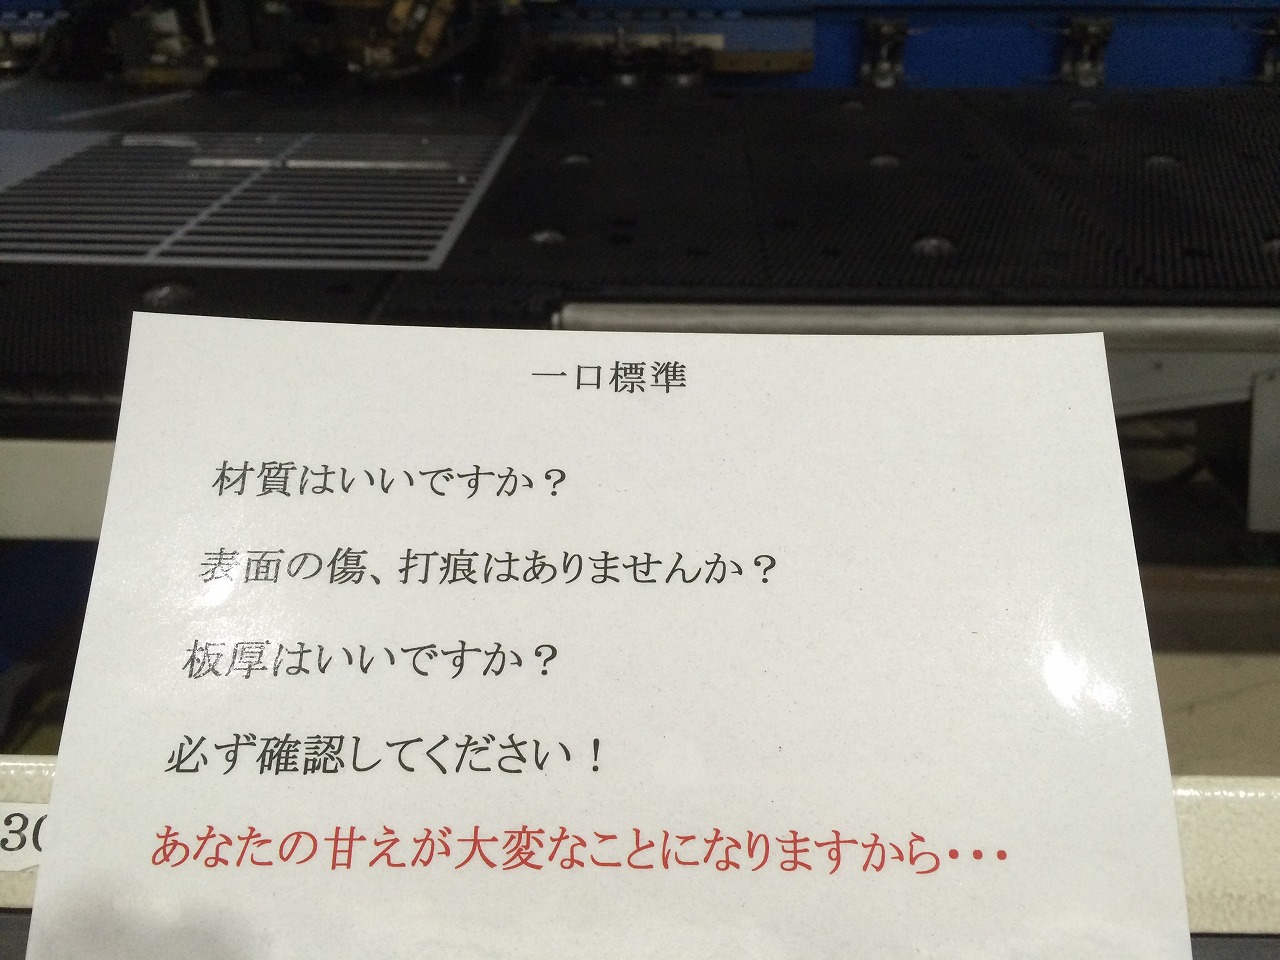 一口標準
材質はいいですか？
表面の傷、打痕はありませんか？
板厚はいいですか？
必ず確認してください！
あなたの甘えが大変なことになりますから・・・